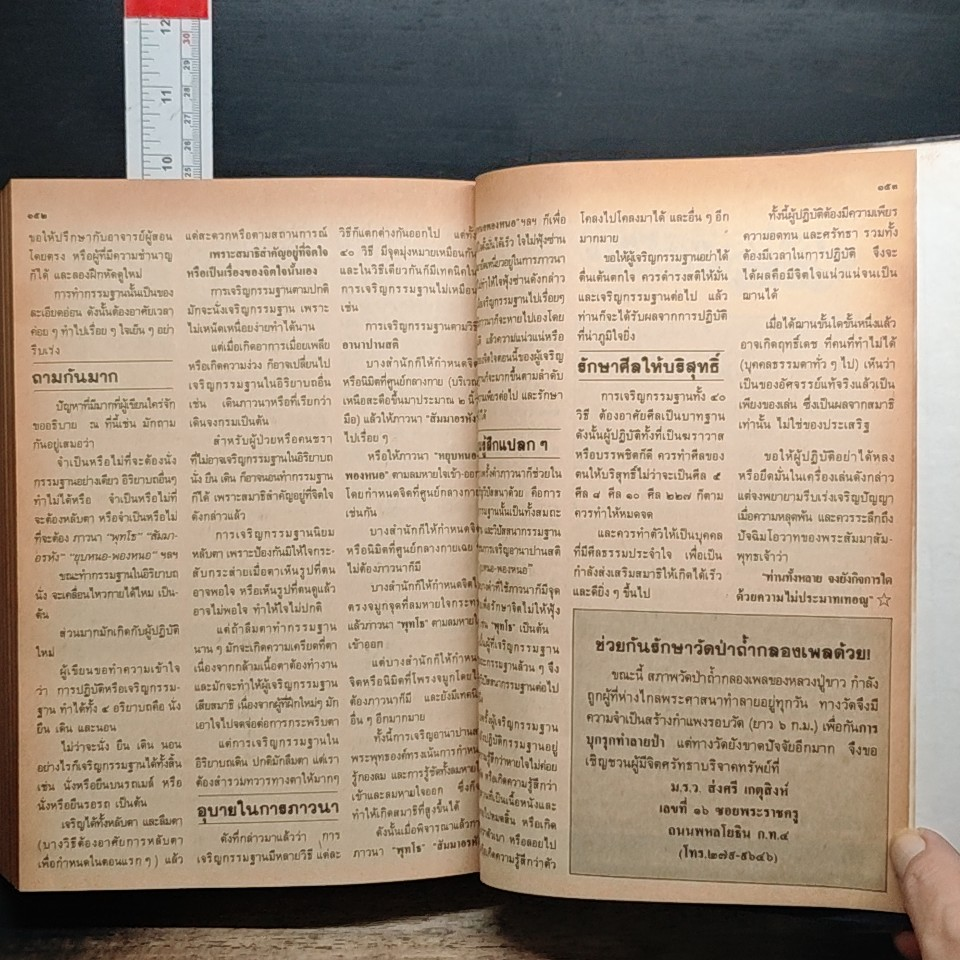 ๑๕๒
ขอให้ปรึกษากับอาจารย์ผู้สอน
โดยตรง หรือผู้ที่มีความชำนาญ
ก็ได้ และลองฝึกหัดดูใหม่
การทำกรรมฐานนั้นเป็นของ
ละเอียดอ่อน ดังนั้นต้องอาศัยเวลา
ค่อย ๆ ทำไปเรื่อย ๆ ใจเย็น ๆ อย่า
รีบเร่ง
ถามกันมาก
ปัญหาที่มีมากที่ผู้เขียนใคร่จัก
ขออธิบาย ณ ที่นี้เช่น มักถาม
กันอยู่เสมอว่า
จำเป็นหรือไม่ที่จะต้องนั่ง
กรรมฐานอย่างเดียว อิริยาบถอื่นๆ
ทำไม่ได้หรือ จำเป็นหรือไม่ที่
จะต้องหลับตา หรือจำเป็นหรือไม่
ที่จะต้อง ภาวนา "พุทโธ" "สัมมา-
อรหัง" "ยุบหนอ-พองหนอ" ฯลฯ
ขณะทำกรรมฐานในอิริยาบถ
นั่ง จะเคลื่อนไหวกายได้ไหม เป็น-
ต้น
ส่วนมากมักเกิดกับผู้ปฏิบัติ
ใหม่
ผู้เขียนขอทำความเข้าใจ
ว่า การปฏิบัติหรือเจริญกรรม-
ฐาน ทำได้ทั้ง ๔ อริยาบถคือ นั่ง
ยืน เดิน และนอน
ไม่ว่าจะนั่ง ยืน เดิน นอน
อย่างไรก็เจริญกรรมฐานได้ทั้งสิ้น
เช่น นั่งหรือยืนบนรถเมล์ หรือ
นั่งหรือยืนรอรถ เป็นต้น
เจริญได้ทั้งหลับตา และลืมตา
(บางวิธีต้องอาศัยการหลับตา
เพื่อกำหนดในตอนแรก ๆ ) แล้ว
แต่สะดวกหรือตามสถานการณ์
เพราะสมาธิสำคัญอยู่ที่จิตใจ
หรือเป็นเรื่องของจิตใจนั้นเอง
การเจริญกรรมฐานตามปกติ
มักจะนั่งเจริญกรรมฐาน เพราะ
ไม่เหน็ดเหนื่อยง่ายทำได้นาน
แต่เมื่อเกิดอาการเมื่อยเพลีย
หรือเกิดความง่วง ก็อาจเปลี่ยนไป
เจริญกรรมฐานในอิริยาบถอื่น
เช่น เดินภาวนาหรือที่เรียกว่า
เดินจงกรมเป็นต้น
สำหรับผู้ป่วยหรือคนชรา
ที่ไม่อาจเจริญกรรมฐานในอิริยาบถ
นั่ง ยืน เดิน ก็อาจนอนทำกรรมฐาน
ก็ได้ เพราะสมาธิสำคัญอยู่ที่จิตใจ
ดังกล่าวแล้ว
การเจริญกรรมฐานนิยม
หลับตา เพราะป้องกันมิให้ใจกระ-
สับกระส่ายเมื่อตาเห็นรูปที่ตน
อาจพอใจ หรือเห็นรูปที่ตนดูแล้ว
อาจไม่พอใจ ทำให้ใจไม่ปกติ
แต่ถ้าลืมตาทำกรรมฐาน
นาน ๆ มักจะเกิดความเครียดที่ตา
เนื่องจากกล้ามเนื้อตาต้องทำงาน
และมักจะทำให้ผู้เจริญกรรมฐาน
เสียสมาธิ เนื่องจากผู้ที่ฝึกใหม่ๆ มัก
เอาใจไปจดจ่อต่อการกระพริบตา
แต่การเจริญกรรมฐานใน
อิริยาบถเดิน ปกติมักลืมตา แต่เรา
ต้องสำรวมทวารทางตาให้มากๆ
อุบายในการภาวนา
ดังที่กล่าวมาแล้วว่า การ
เจริญกรรมฐานมีหลายวิธี แต่ละ
วิธีก็แตกต่างกันออกไป แต่ทั้ง
๔๐ วิธี มีจุดมุ่งหมายเหมือนกัน
และในวิธีเดียวกันก็มีเทคนิคใน
การเจริญกรรมฐานไม่เหมือน
เช่น
การเจริญกรรมฐานตามวิธี
อานาปานสติ
บางสำนักก็ให้กำหนดจิต
หรือนิมิตที่ศูนย์กลางกาย (บริเวณ
เหนือสะดือขึ้นมาประมาณ ๒ นิ้ว
มือ) แล้วให้ภาวนา "สัมมาอรหัง"
ไปเรื่อย ๆ
หรือให้ภาวนา "หยุบหนอ-
พองหนอ" ตามลมหายใจเข้า-ออก
โดยกำหนดจิตที่ศูนย์กลางกาย
เช่นกัน
บางสำนักก็ให้กำหนดจิต
หรือนิมิตที่ศูนย์กลางกายเฉย ๆ
ไม่ต้องภาวนาก็มี
บางสำนักก็ให้กำหนดจิต
ตรงจมูกจุดที่ลมหายใจกระทบ
แล้วภาวนา "พุทโธ" ตามลมหายใจ
เข้าออก
แต่บางสำนักก็ให้กำหนด
จิตหรือนิมิตที่โพรงจมูกโดยไม่
ต้องภาวนาก็มี และยังมีเทคนิค
อื่น ๆ อีกมากมาย
ทั้งนี้การเจริญอานาปานสติ
พระพุทธองค์ทรงเน้นการกำหนด
รู้กองลม และการรู้ชัดทั้งลมหายใจ
เข้าและลมหายใจออก ซึ่งก็
ทำให้เกิดสมาธิที่สูงขึ้นได้
ดังนั้นเมื่อพิจารณาแล้วการ
ภาวนา "พุทโธ" "สัมมาอรหัง"
๑๕๓
พองหนอ" ฯลฯ ก็เพื่อ
ได้เร็ว ใจไม่ฟุ้งซ่าน
เหนี่ยวอยู่ในการภาวนา
ทำให้ใจฟุ้งซ่านดังกล่าว
เจริญกรรมฐานไปเรื่อยๆ
ภาวนาก็จะหายไปเองโดย
แล้วความแน่วแน่หรือ
ของจิตใจตอนนี้ของผู้เจริญ
ก็จะมากขึ้นตามลำดับ
เพียรต่อไป และรักษา
ได้
รู้สึกแปลก ๆ
คำภาวนาก็ช่วยใน
วิปัสสนาด้วย คือการ
ฐานนั้นเป็นทั้งสมถะ
และวิปัสสนากรรมฐาน
การเจริญอานาปานสติ
หนอ-พองหนอ"
ที่ใช้ภาวนาก็มีจุด
รักษาจิตไม่ให้ฟุ้ง
"พุทโธ" เป็นต้น
ผู้ที่เจริญกรรมฐาน
กรรมฐานล้วน ๆ จึง
วิปัสสนากรรมฐานต่อไป
ผู้เจริญกรรมฐาน
ปฏิบัติกรรมฐานอยู่
รู้สึกว่าหายใจไม่ค่อย
หรือเกิดความรู้สึก
เป็นเนื้อหนังและ
ไปหมดสิ้น หรือเกิด
หรือลอยไป
เกิดความรู้สึกว่าตัว
โคลงไปโคลงมาได้ และอื่น ๆ อีก
มากมาย
ขอให้ผู้เจริญกรรมฐานอย่าได้
ตื่นเต้นตกใจ ควรดำรงสติให้มั่น
และเจริญกรรมฐานต่อไป แล้ว
ท่านก็จะได้รับผลจากการปฏิบัติ
ที่น่าภูมิใจยิ่ง
รักษาศีลให้บริสุทธิ์
การเจริญกรรมฐานทั้ง ๔๐
วิธี ต้องอาศัยศีลเป็นบาทฐาน
ดังนั้นผู้ปฏิบัติทั้งที่เป็นฆราวาส
หรือบรรพชิตก็ดี ควรทำศีลของ
ตนให้บริสุทธิ์ไม่ว่าจะเป็นศีล ๕
ศีล ๘ ศีล ๑๐ ศีล ๒๒๗ ก็ตาม
ควรทำให้หมดจด
และควรทำตัวให้เป็นบุคคล
ที่มีศีลธรรมประจำใจ เพื่อเป็น
กำลังส่งเสริมสมาธิให้เกิดได้เร็ว
และดียิ่ง ๆ ขึ้นไป
ทั้งนี้ผู้ปฏิบัติต้องมีความเพียร
ความอดทน และศรัทธา รวมทั้ง
ต้องมีเวลาในการปฏิบัติ จึงจะ
ได้ผลคือมีจิตใจแน่วแน่จนเป็น
ฌานได้
เมื่อได้ฌานขั้นใดขั้นหนึ่งแล้ว
อาจเกิดฤทธิ์เดช ที่คนที่ทำไม่ได้
(บุคคลธรรมดาทั่ว ๆ ไป) เห็นว่า
เป็นของอัศจรรย์แท้จริงแล้วเป็น
เพียงของเล่น ซึ่งเป็นผลจากสมาธิ
เท่านั้น ไม่ใช่ของประเสริฐ
ขอให้ผู้ปฏิบัติอย่าได้หลง
หรือยึดมั่นในเครื่องเล่นดังกล่าว
แต่จงพยายามรีบเร่งเจริญปัญญา
เมื่อความหลุดพ้น และควรระลึกถึง
ปัจฉิมโอวาทของพระสัมมาสัม-
พุทธเจ้าว่า
"ท่านทั้งหลาย จงยังกิจการใด
ด้วยความไม่ประมาทเทอญ" ☆
ช่วยกันรักษาวัดป่าถ้ำกลองเพลด้วย!
ขณะนี้ สภาพวัดป่าถ้ำกลองเพลของหลวงปู่ขาว กำลัง
ถูกผู้ที่ห่างไกลพระศาสนาทำลายอยู่ทุกวัน ทางวัดจึงมี
ความจำเป็นสร้างกำแพงรอบวัด (ยาว ๖ ก.ม.) เพื่อกันการ
บุกรุกทำลายป่า แต่ทางวัดยังขาดปัจจัยอีกมาก จึงขอ
เชิญชวนผู้มีจิตศรัทธาบริจาคทรัพย์ที่
ม.ร.ว. ส่งศรี เกตุสิงห์
เลขที่ ๑๖ ซอยพระราชครู
ถนนพหลโยธิน ก.ท.๔
(โทร.๒๗๙-๕๖๔๖)
12
11
10
30
29
28
27
26
25